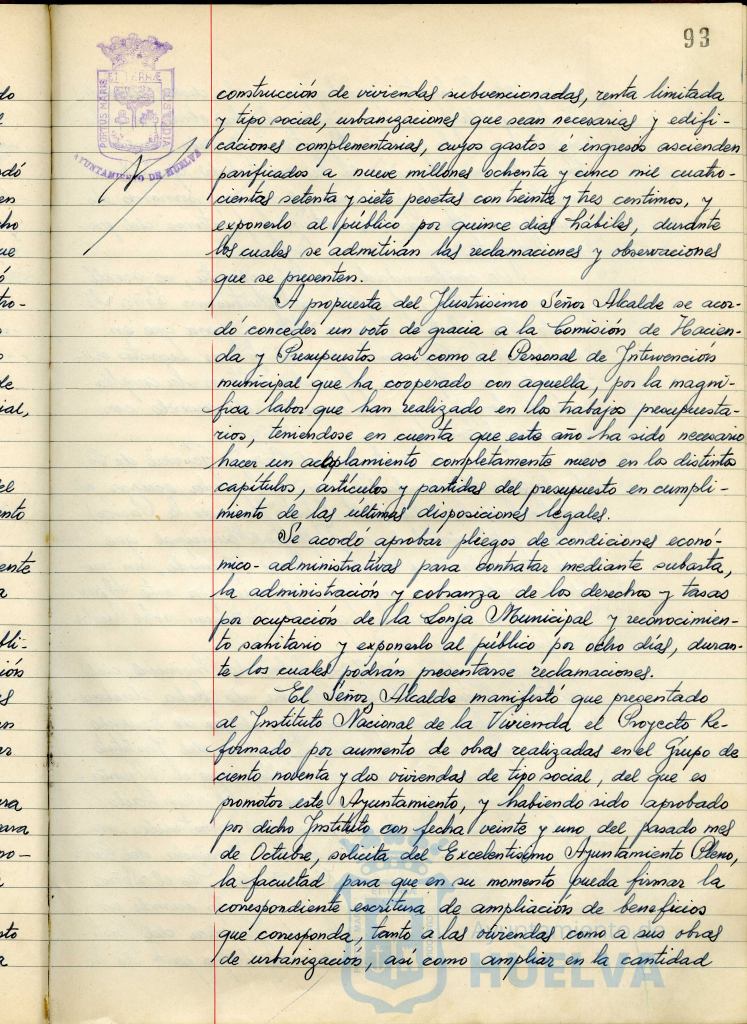 93
PORTUS MARIS ET TERRAE CUSTODIA
AYUNTAMIENTO DE HUELVA
construcción de viviendas subvencionadas, renta limitada
y tipo social, urbanizaciones que sean necesarias y edifi-
caciones complementarias, cuyos gastos é ingresos ascienden
parificados a nueve millones ochenta y cinco mil cuatro-
cientas setenta y siete pesetas con treinta y tres centimos, y
exponerlo al público por quince dias hábiles, durante
los cuales se admitirán las reclamaciones y observaciones
que se presenten.
A propuesta del Ilustrisimo Señor Alcalde se acor-
dó conceder un voto de gracia a la Comisión de Hacien-
da y Presupuestos asi como al Personal de Intervención
municipal que ha cooperado con aquella, por la magni-
fica labor que han realizado en los trabajos presupuesta-
rios, teniendose en cuenta que este año ha sido necesario
hacer un acoplamiento completamente nuevo en los distintos
capítulos, artículos y partidas del presupuesto en cumpli-
miento de las últimas disposiciones legales.
Se acordó aprobar pliegos de condiciones econó-
mico-administrativas para contratar mediante subasta,
la administración y cobranza de los derechos y tasas
por ocupación de la Lonja Municipal y reconocimien-
to sanitario y exponerlo al público por ocho días, duran-
te los cuales podrán presentarse reclamaciones.
El Señor Alcalde manifestó que presentado
al Instituto Nacional de la Vivienda el Proyecto Re-
formado por aumento de obras realizadas en el Grupo de
ciento noventa y dos viviendas de tipo social, del que es
promotor este Ayuntamiento, y habiendo sido aprobado
por dicho Instituto con fecha veinte y uno del pasado mes
de Octubre, solicita del Excelentisimo Ayuntamiento Pleno,
la facultad para que en su momento pueda firmar la
correspondiente escritura de ampliación de beneficios
que corresponda, tanto a las viviendas como a sus obras
de urbanización, así como ampliar en la cantidad
Ayuntamiento
HUELVA